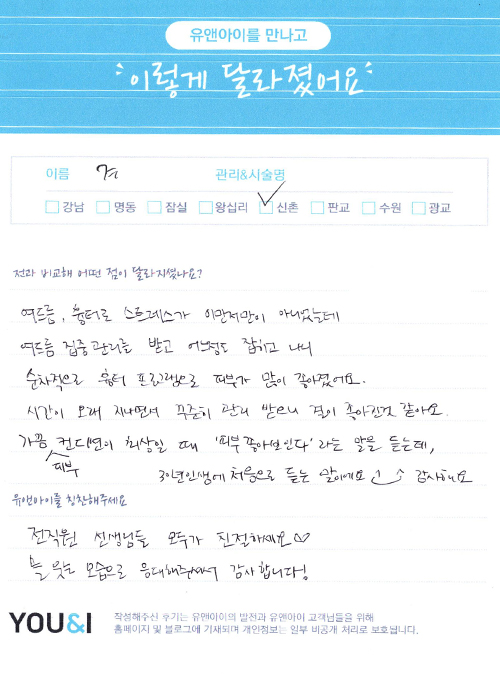 유앤아이를 만나고
이렇게 달라졌어요
이름
관리&시술명
강남 명동 잠실 왕십리 신촌 판교 수원 광교
전과 비교해 어떤 점이 달라지셨나요?
여드름, 흉터로 스트레스가 이만저만이 아니었는데
여드름 집중관리를 받고 어느정도 잡히고 나니
순차적으로 흉터 프로그램으로 피부가 많이 좋아졌어요.
시간이 오래 지나면서 꾸준히 관리 받으니 결이 좋아진것 같아요.
가끔 피부 컨디션이 최상일 때 '피부 좋아보인다' 라는 말을 듣는데,
30년인생에 처음으로 듣는 말이에요 감사해요
유앤아이를 칭찬해주세요
전직원 선생님들 모두가 친절하세요♡
늘 웃는 모습으로 응대해주셔서 감사합니다!
YOU&I
작성해주신 후기는 유앤아이의 발전과 유앤아이 고객님들을 위해
홈페이지 및 블로그에 기재되며 개인정보는 일부 비공개 처리로 보호됩니다.